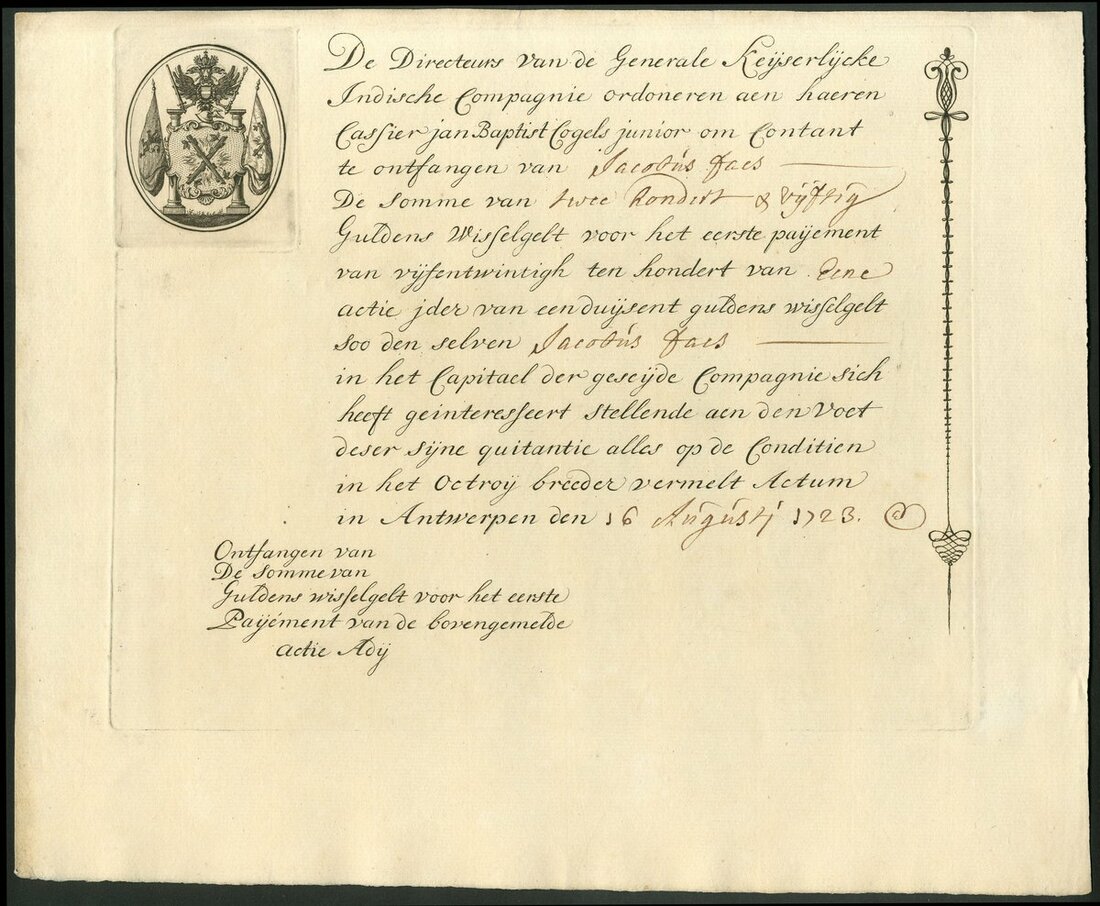 De Directeurs van de Generale Keijserlijcke
Indische Compagnie ordoneren aen haeren
Cassier jan Baptist Cogels junior om Contant
te ontfangen van Jacobus Faes
De Somme van twee hondert & vijftig
Guldens Wisselgelt voor het eerste paijement
van vijfentwintigh ten hondert van Eene
actie jder van een duijsent guldens wisselgelt
soo den selven Jacobus Faes
in het Capitael der geseijde Compagnie sich
heeft geinteresseert stellende aen den Voet
deser sijne quitantie alles op de Conditien
in het Octroij breeder vermelt Actum
in Antwerpen den 16 Augustij 1723.
Ontfangen van
De Somme van
Guldens wisselgelt voor het eerste
Paijement van de bovengemelde
actie Adij